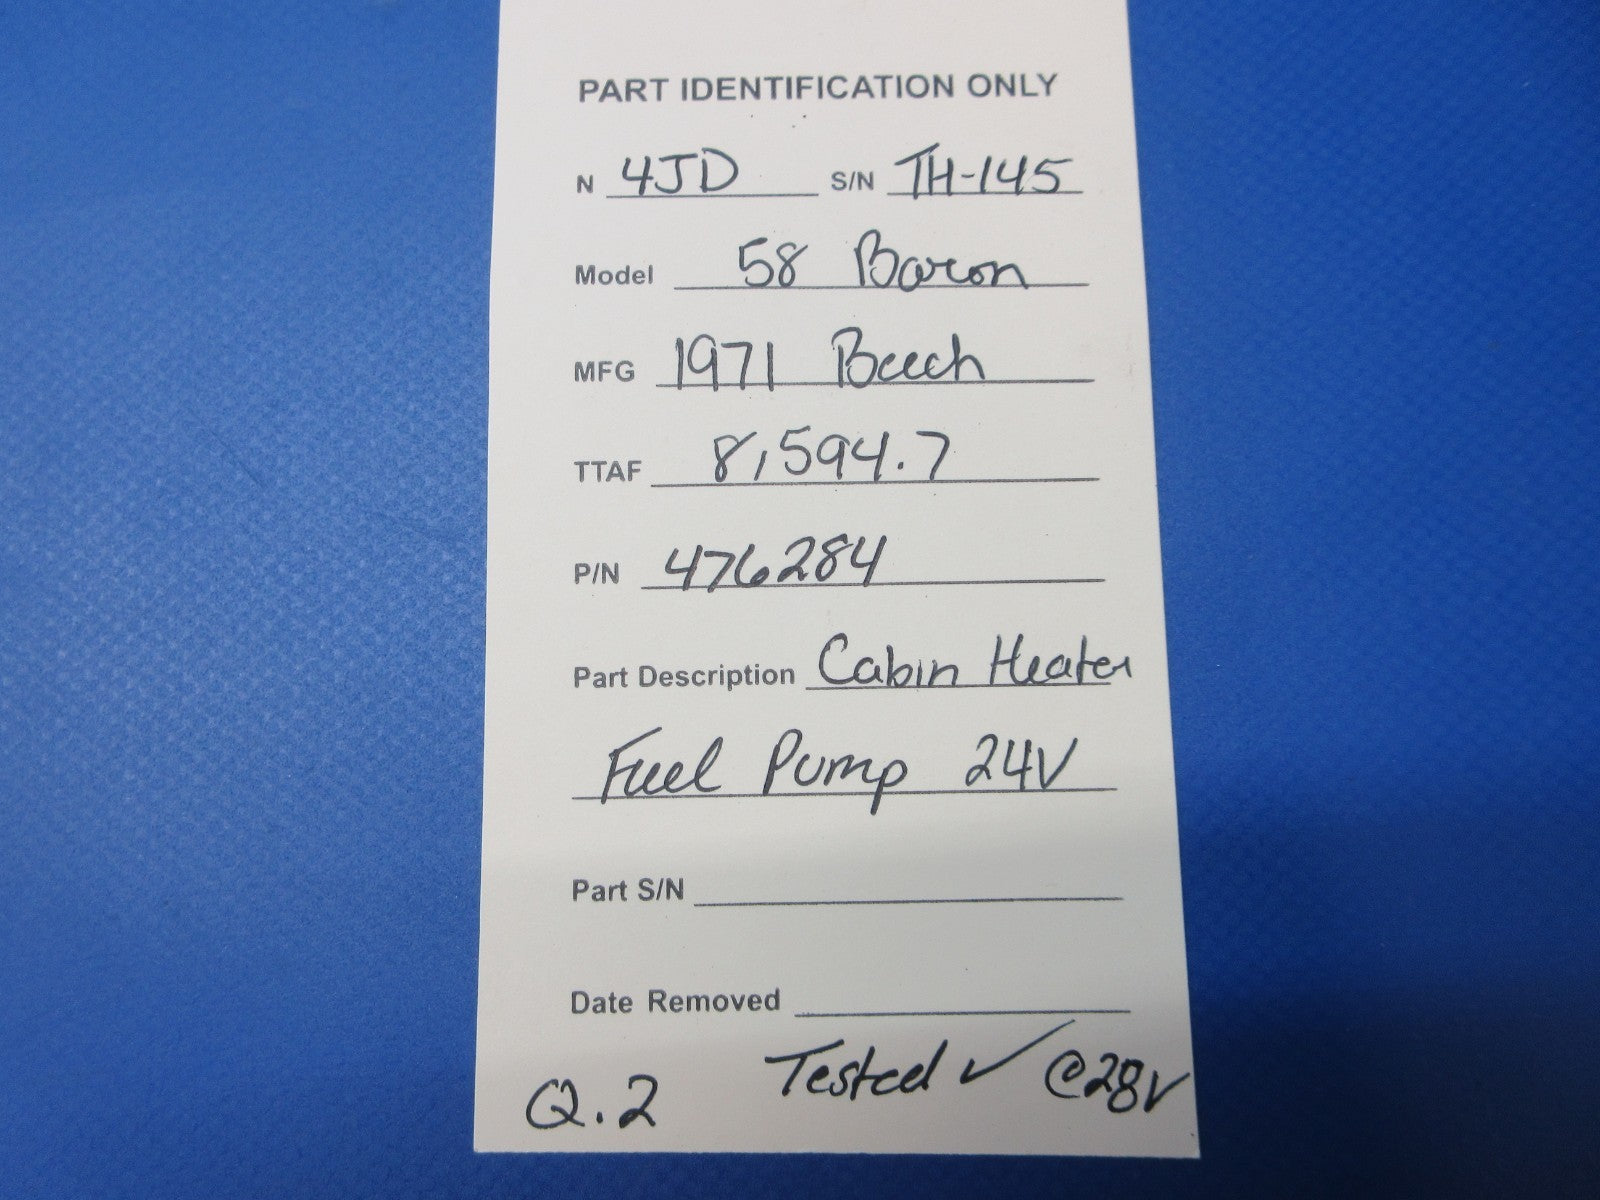 PART IDENTIFICATION ONLY
N 4JD S/N TH-145
Model 58 Baron
MFG 1971 Beech
TTAF 8,594.7
P/N 476284
Part Description Cabin Heater
Fuel Pump 24V
Part S/N
Date Removed
Tested ✓ @28V
Q.2